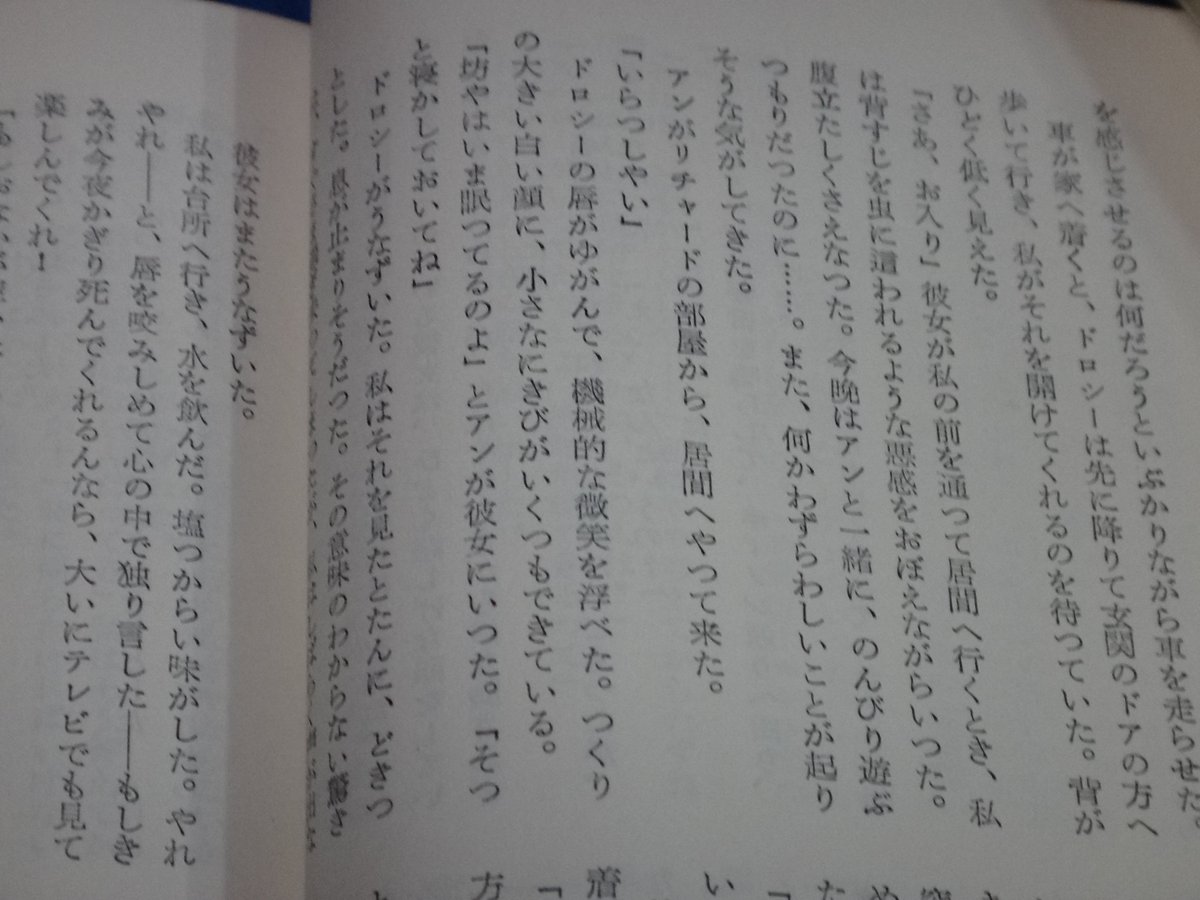 を感じさせるのは何だろうといぶかりながら車を走らせた。
車が家へ着くと、ドロシーは先に降りて玄関のドアの方へ
歩いて行き、私がそれを開けてくれるのを待つていた。背が
ひどく低く見えた。
「さあ、お入り」彼女が私の前を通つて居間へ行くとき、私
は背すじを虫に這われるような悪感をおぼえながらいつた。
腹立たしくさえなつた。今晩はアンと一緒に、のんびり遊ぶ
つもりだつたのに……。また、何かわずらわしいことが起り
そうな気がしてきた。
アンがリチャードの部屋から、居間へやつて来た。
「いらつしやい」
ドロシーの唇がゆがんで、機械的な微笑を浮べた。つくり
の大きい白い顔に、小さなにきびがいくつもできている。
「坊やはいま眠つてるのよ」とアンが彼女にいつた。「そつ
と寝かしておいてね」
ドロシーがうなずいた。私はそれを見たとたんに、どきつ
とした。息が止まりそうだつた。その意味のわからない驚き
彼女はまたうなずいた。
私は台所へ行き、水を飲んだ。塩つからい味がした。やれ
やれ――と、唇を咬みしめて心の中で独り言した――もしき
みが今夜かぎり死んでくれるんなら、大いにテレビでも見て
楽しんでくれ！